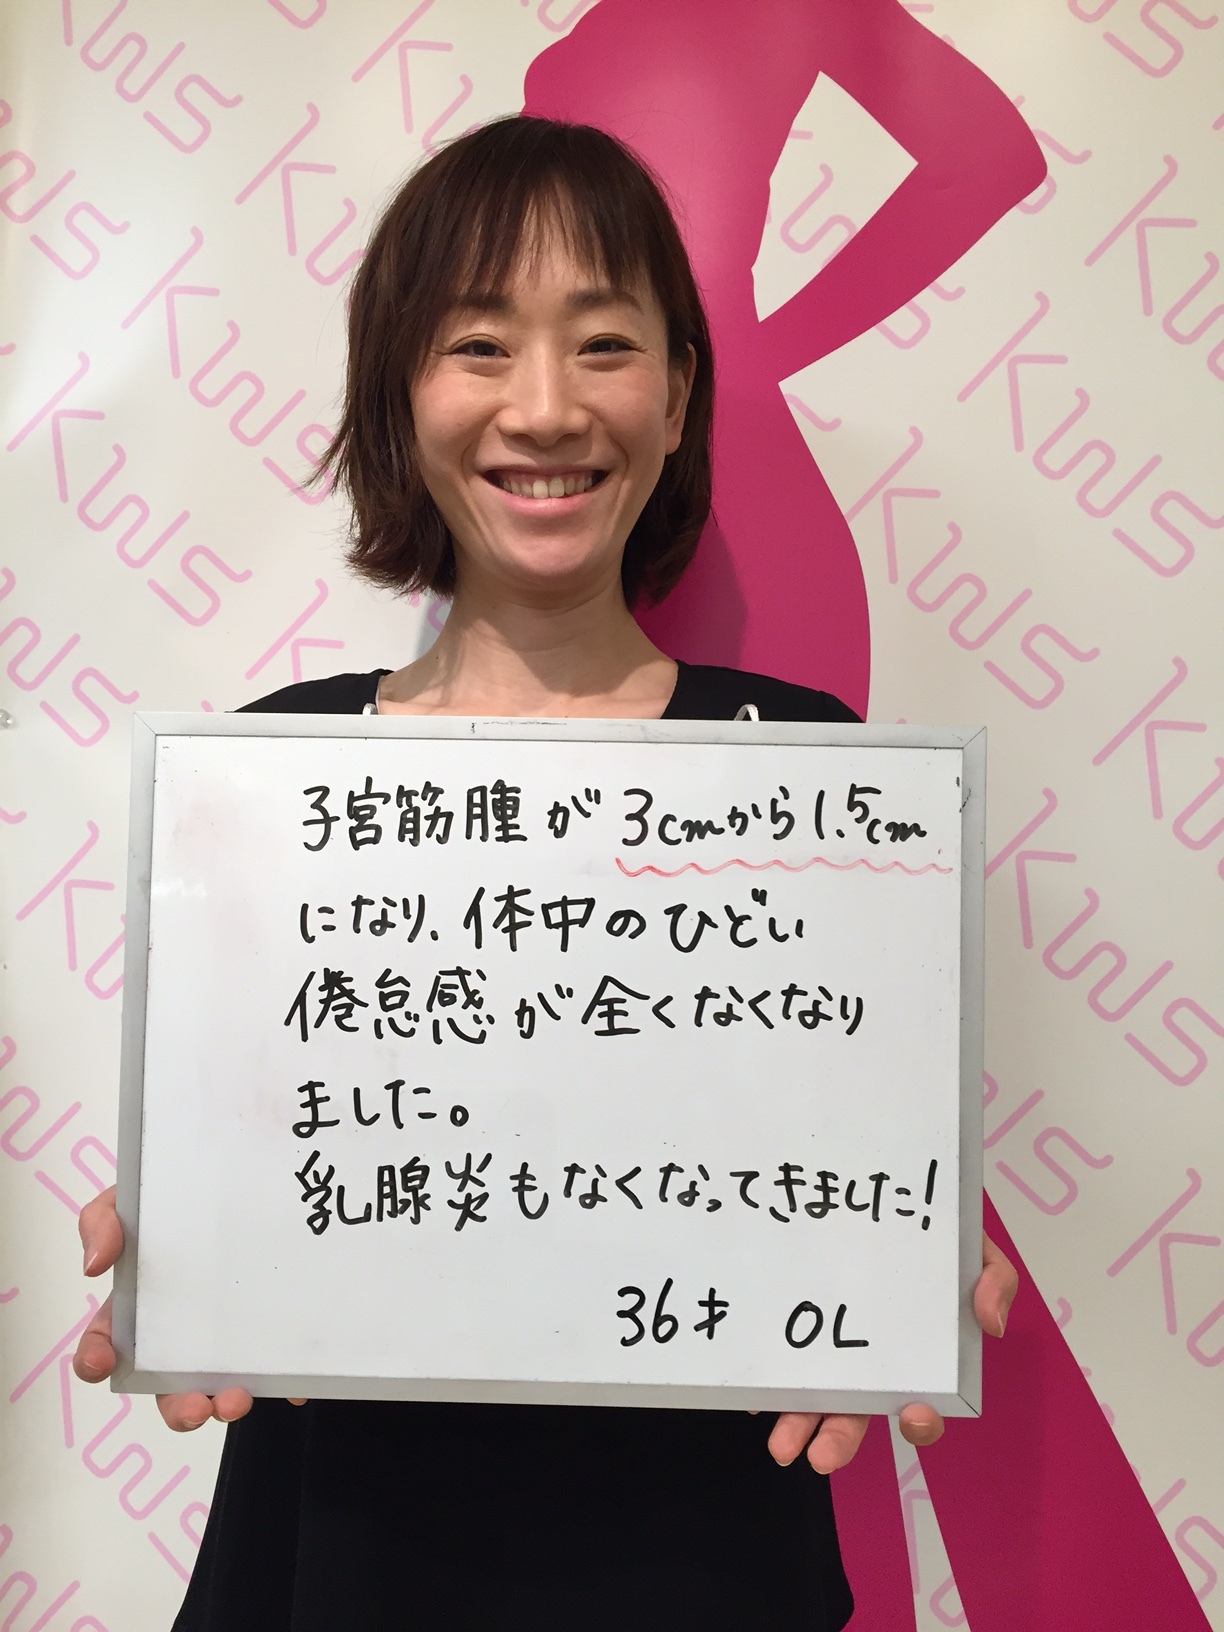 子宮筋腫が3cmから1.5cm
になり、体中のひどい
倦怠感が全くなくなり
ました。
乳腺炎もなくなってきました!
36才 OL
KWS